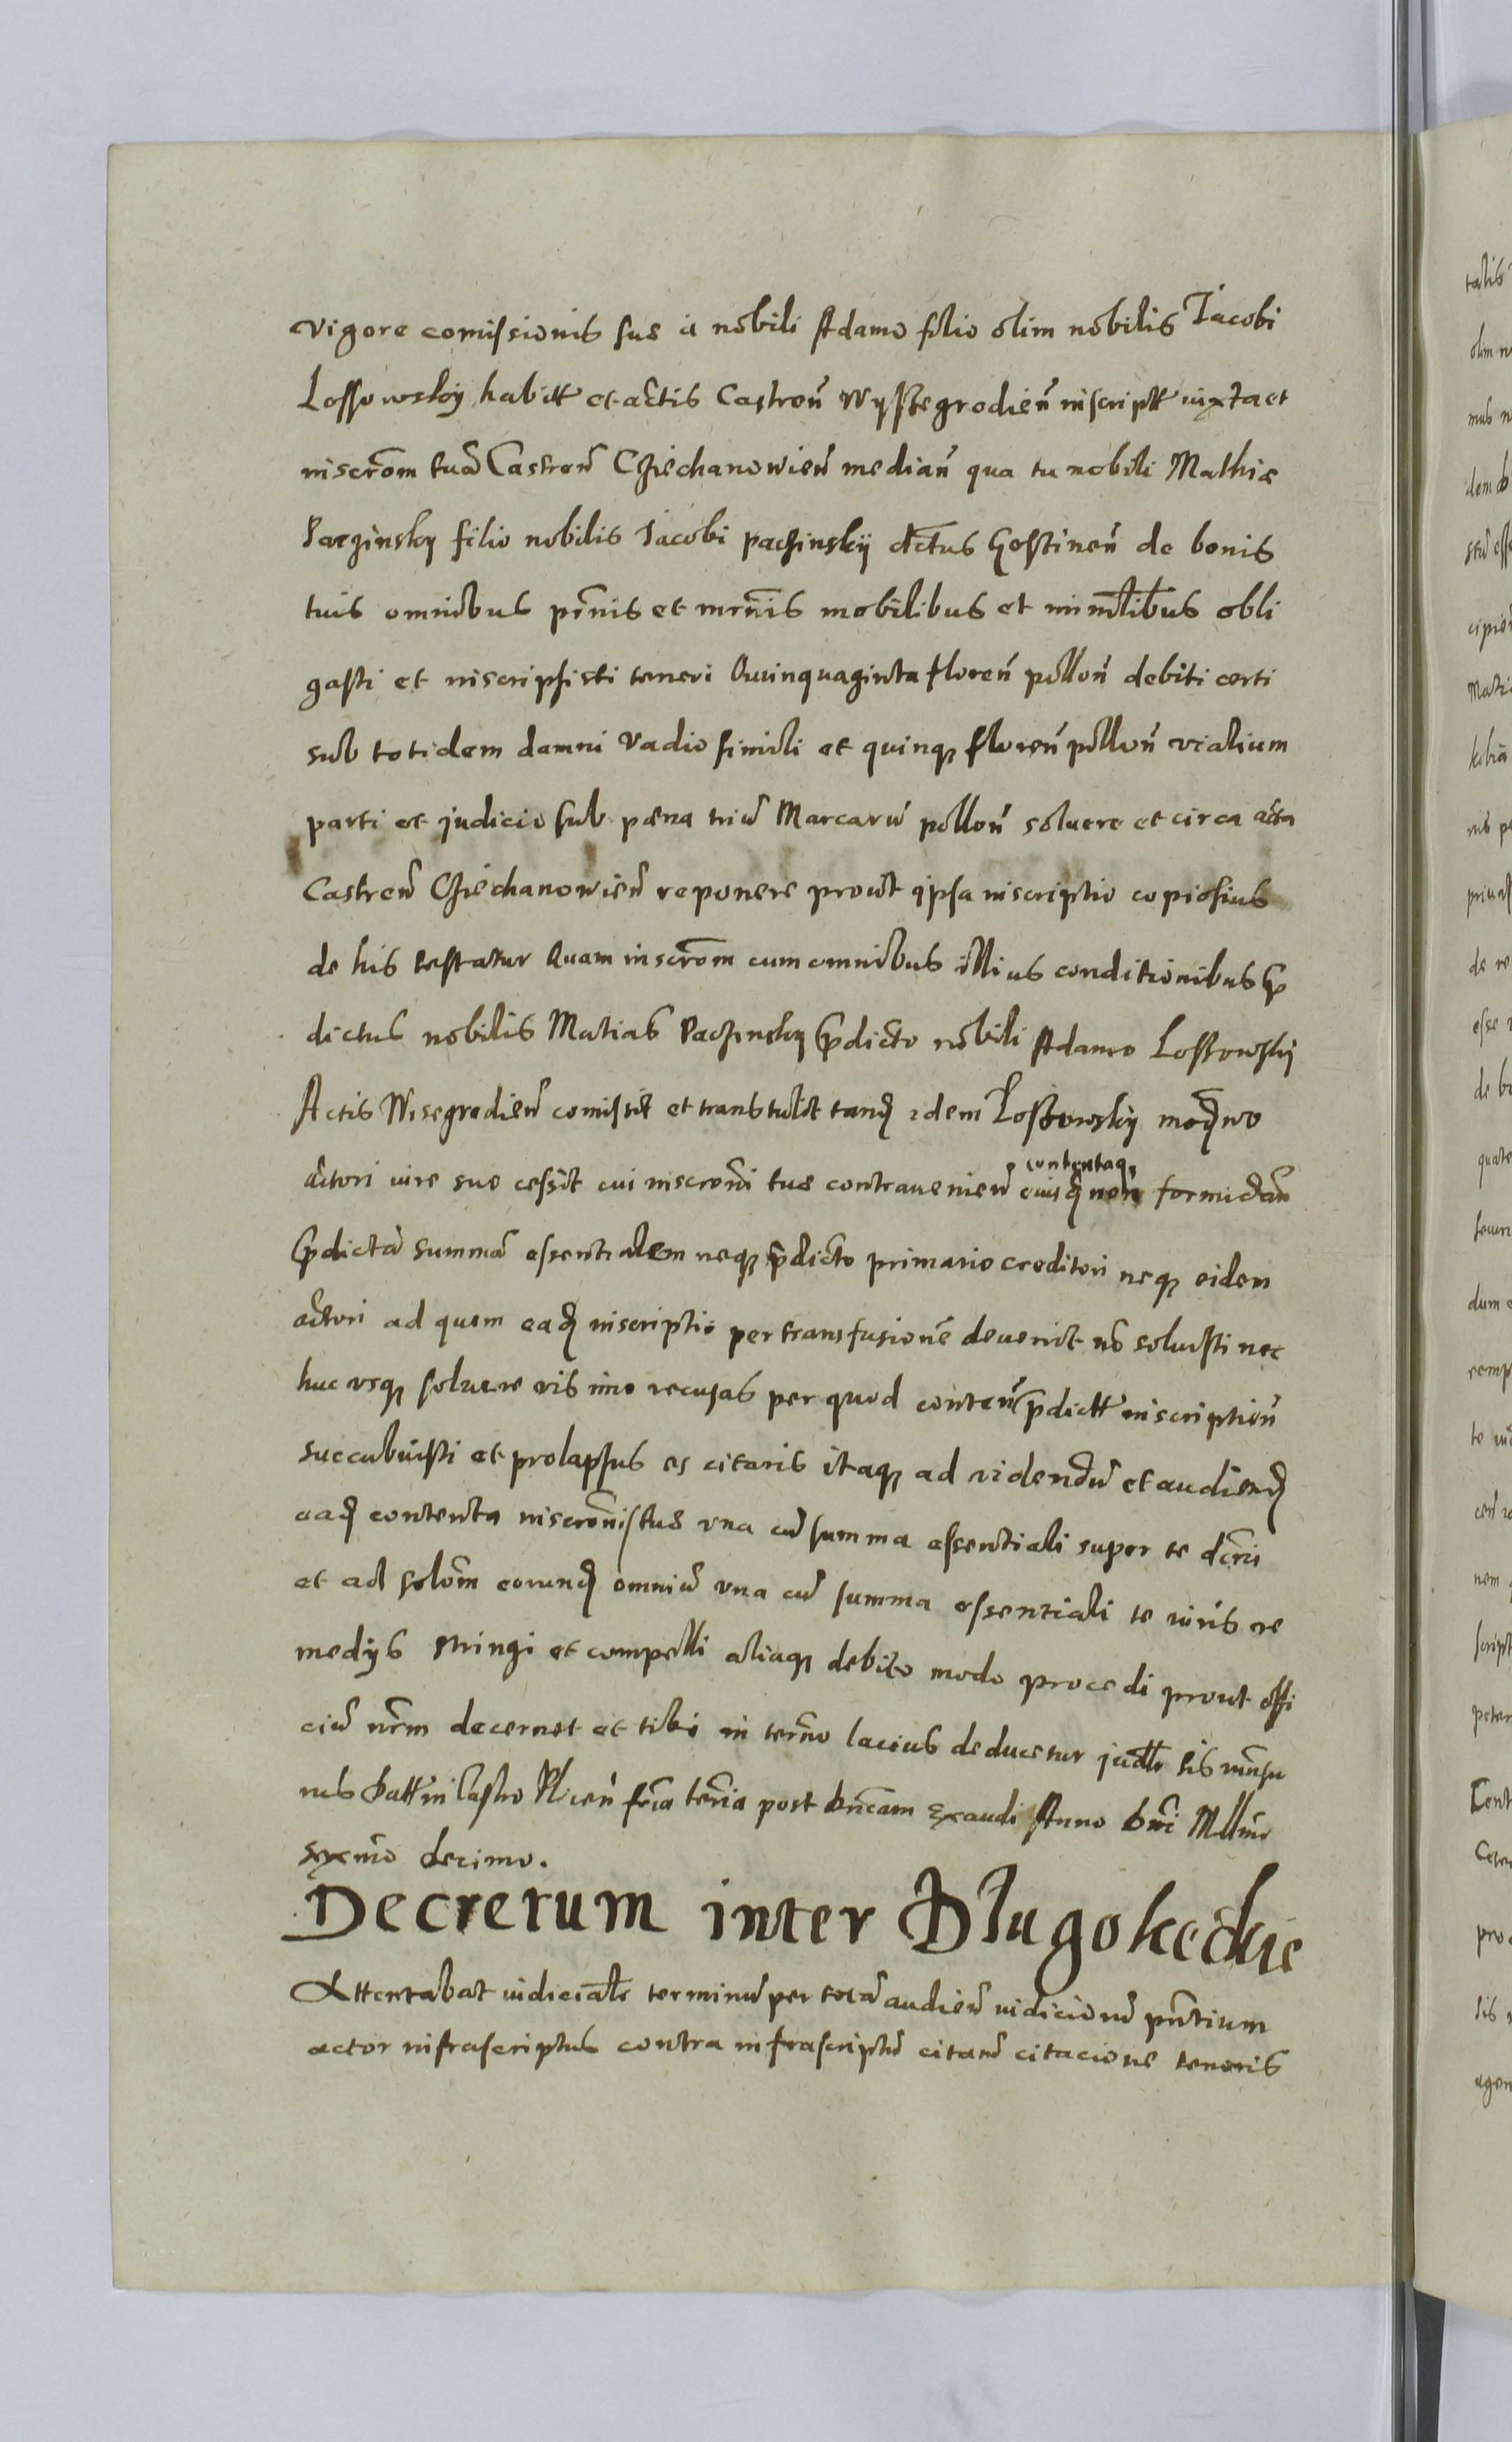 vigore comissionis sue a nobili Adamo filio olim nobilis Jacobi
Lossowsky habitt et actis Castren Wyssegrodien inscriptt iuxta et
inscrom tuã Castren Cziechanowien median qua tu nobili Mathie
Paczinsky filio nobilis Jacobi paczinskÿ dictus Gostinen de bonis
tuis omnibus prnis et mrnis mobilibus et immlibus obli
gasti et inscripsisti teneri Quinquaginta floren pollon debiti certi
sub totidem damni vadio simili et quinq floren pollon vialium
parti et judicio sub pæna triũ Marcarũ pollon soluere et circa acta
Castren Cziechanowien reponere prout ipsa inscriptio copiosius
de his testatur Quam inscrom cum omnibus illius conditionibus p
dictus nobilis Matias Paczinsky pdicto nobili Adamo Lossowsky
Actis Wisegrodien comisit et transtulit tand idem Lossowsky modrno
actori iure suo cessit cui inscroni tue contrauenien contentaq
eiusd non formidan
pdictã summã essentialem neq pdicto primario creditori neq eidem
actori ad quem ead inscriptio per transfusionẽ deuenit nõ soluisti nec
huc usq soluere vis imo recusas per quod conten pdictt inscription
succubuisti et prolapsus es citaris itaq ad videndũ et audiend
ead contenta inscronis tue vna cũ summa essentiali super te dcrni
et ad solom eorund omniũ vna cũ summa essentiali te iuris re
medÿs stringi et compelli aliaq debito modo procedi prout offi
ciũ nrm decernet et tibi in termo lacius deducetur judtr sis rnnsu
rus Datt in Castro Plicen fria tertia post dncam Exaudi Anno dni Mllmo
sexmo decimo.
Decretum inter Dlugokeckie
Attentabat iudicialr terminũ per totã audien iudiciorũ pntium
actor infrascriptus contra infrascriptũ citatũ citacione tenoris